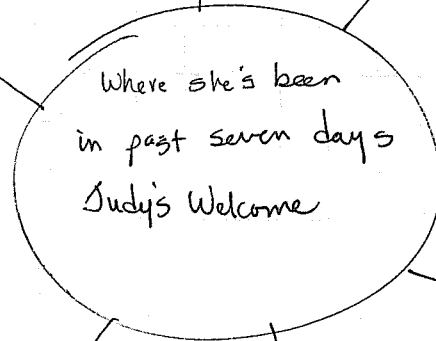 Where she's been
in past seven days
Judy's Welcome